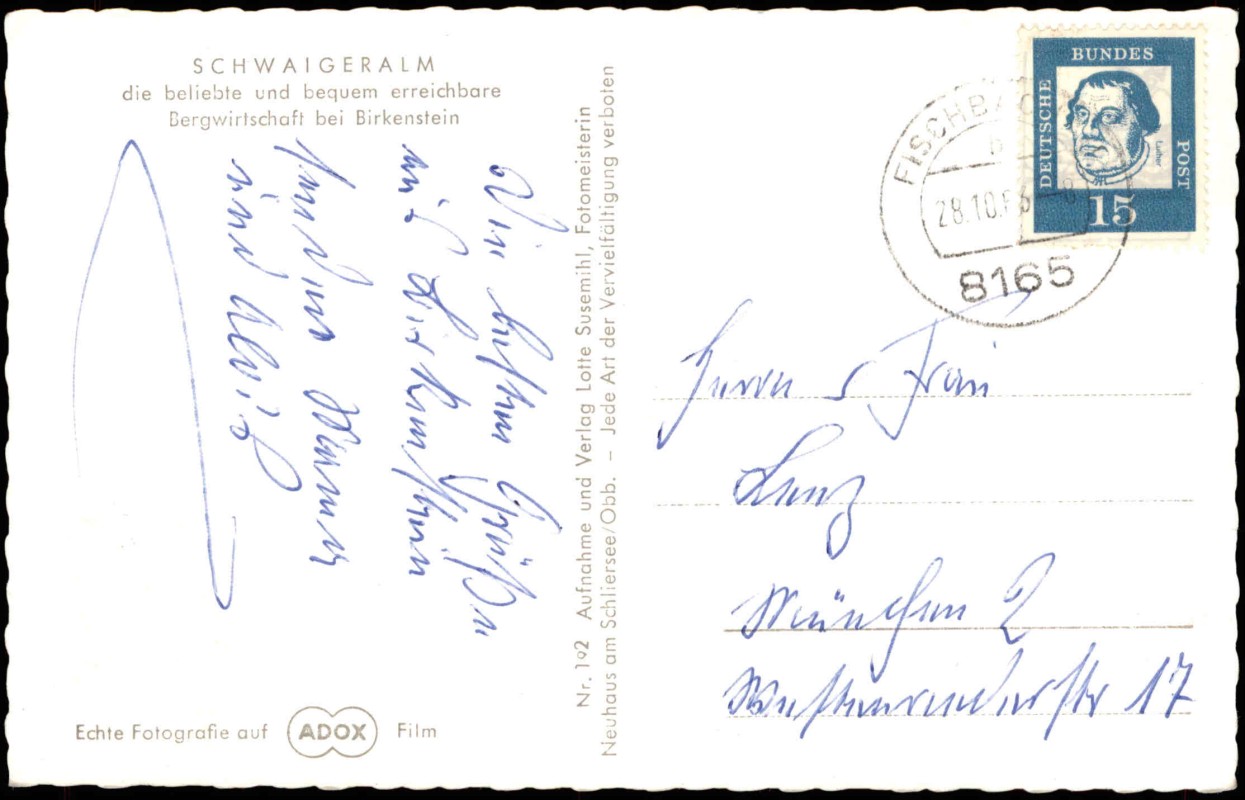 SCHWAIGERALM
die beliebte und bequem erreichbare
Bergwirtschaft bei Birkenstein
Die besten Grüße
aus Birkenstein
senden Werner
und Alois
Echte Fotografie auf ADOX Film
Nr. 192 Aufnahme und Verlag Lotte Susemihl, Fotomeisterin
Neuhaus am Schliersee/Obb. – Jede Art der Vervielfältigung verboten
DEUTSCHE BUNDES POST
Luther
15
FISCHBACH
28.10.63 – 8
8165
Herrn u Frau
Lenz
München 2
17